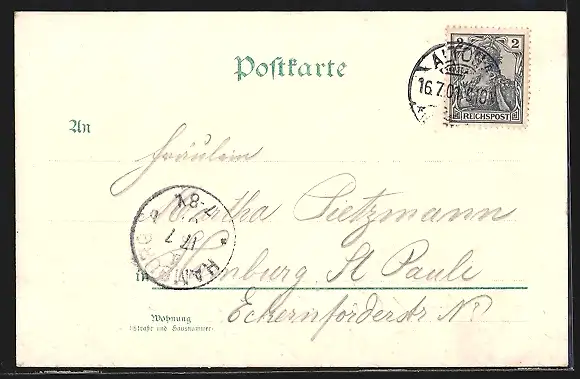 Postkarte
2 2
ALTONA
16.7.01
REICHSPOST
An
Fräulein
Martha Pietzmann
in Hamburg St Paule
Eckernförderstr No
Wohnung
(Straße und Hausnummer)
HAMBURG
17 7
7-8V